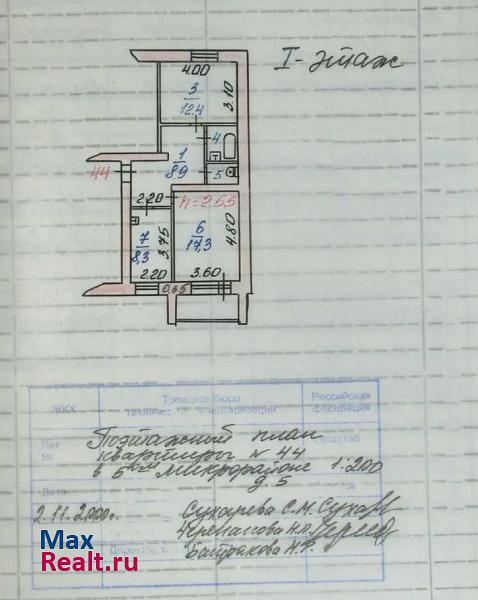 I - этаж
4.00
3
12.4
3.10
4
1
8.9
5
44
2.20
h=2.55
7
8.3
3.75
6
17.3
4.80
2.20
3.60
0.65
ЖКХ
Троицкое бюро
технической инвентаризации
Российская
Федерация
Лит
№
Поэтажный план
квартиры № 44
в 5ом микрорайоне
д. 5
1:200
Дата
2.11.2000г.
Сухарева С.М.
Max
Realt.ru